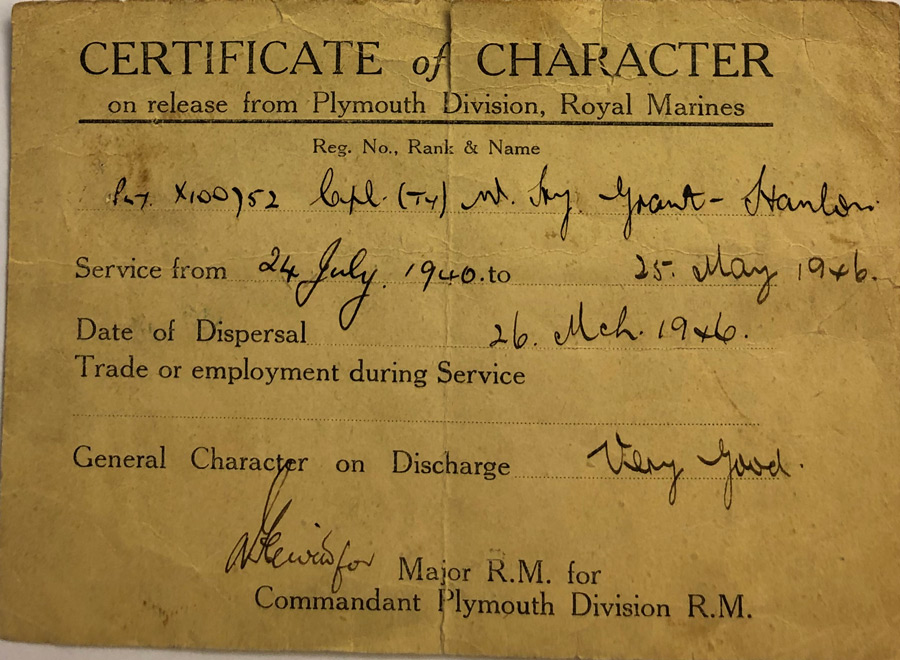 CERTIFICATE of CHARACTER
on release from Plymouth Division, Royal Marines
Reg. No., Rank & Name
X100752 Cpl. (Ty) Grant-Hanlon
Service from 24 July. 1940. to 25. May 1946.
Date of Dispersal 26. Mch. 1946.
Trade or employment during Service
General Character on Discharge Very Good.
for Major R.M. for
Commandant Plymouth Division R.M.